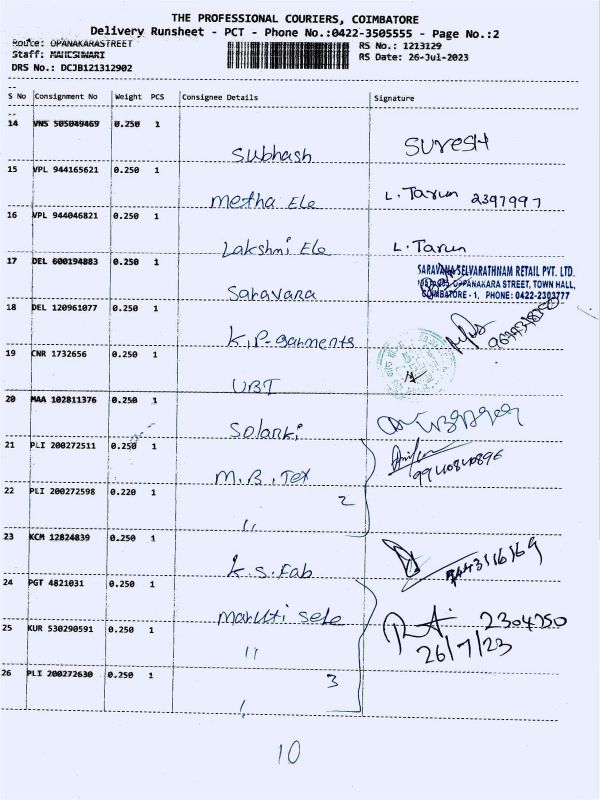 THE PROFESSIONAL COURIERS, COIMBATORE
Delivery Runsheet - PCT - Phone No.:0422-3505555 - Page No.:2
Route: OPANAKARASTREET
RS No.: 1213129
Staff: MAHESHWARI
RS Date: 26-Jul-2023
DRS No.: DCJB121312902
S No Consignment No Weight PCS Consignee Details Signature
14 VNS 505049469 0.250 1 Subhash SURESH
15 VPL 944165621 0.250 1 Metha Ele L. Tarun 2397997
16 VPL 944046821 0.250 1 Lakshmi Ele L. Tarun
17 DEL 600194883 0.250 1 Saravana
SARAVANA SELVARATHNAM RETAIL PVT. LTD.
OPPANAKARA STREET, TOWN HALL,
COIMBATORE - 1, PHONE: 0422-2303777
18 DEL 120961077 0.250 1 K.P-garments
19 CNR 1732656 0.250 1 UBI
20 MAA 102811376 0.250 1 Solanki
21 PLI 200272511 0.250 1 M.B. Tex 9940840896
22 PLI 200272598 0.220 1 " 2
23 KCM 12824839 0.250 1 K.S. Fab
24 PGT 4821031 0.250 1 Maruti Sele 2304750
25 KUR 530290591 0.250 1 " 26/7/23
26 PLI 200272630 0.250 1 " 3
10